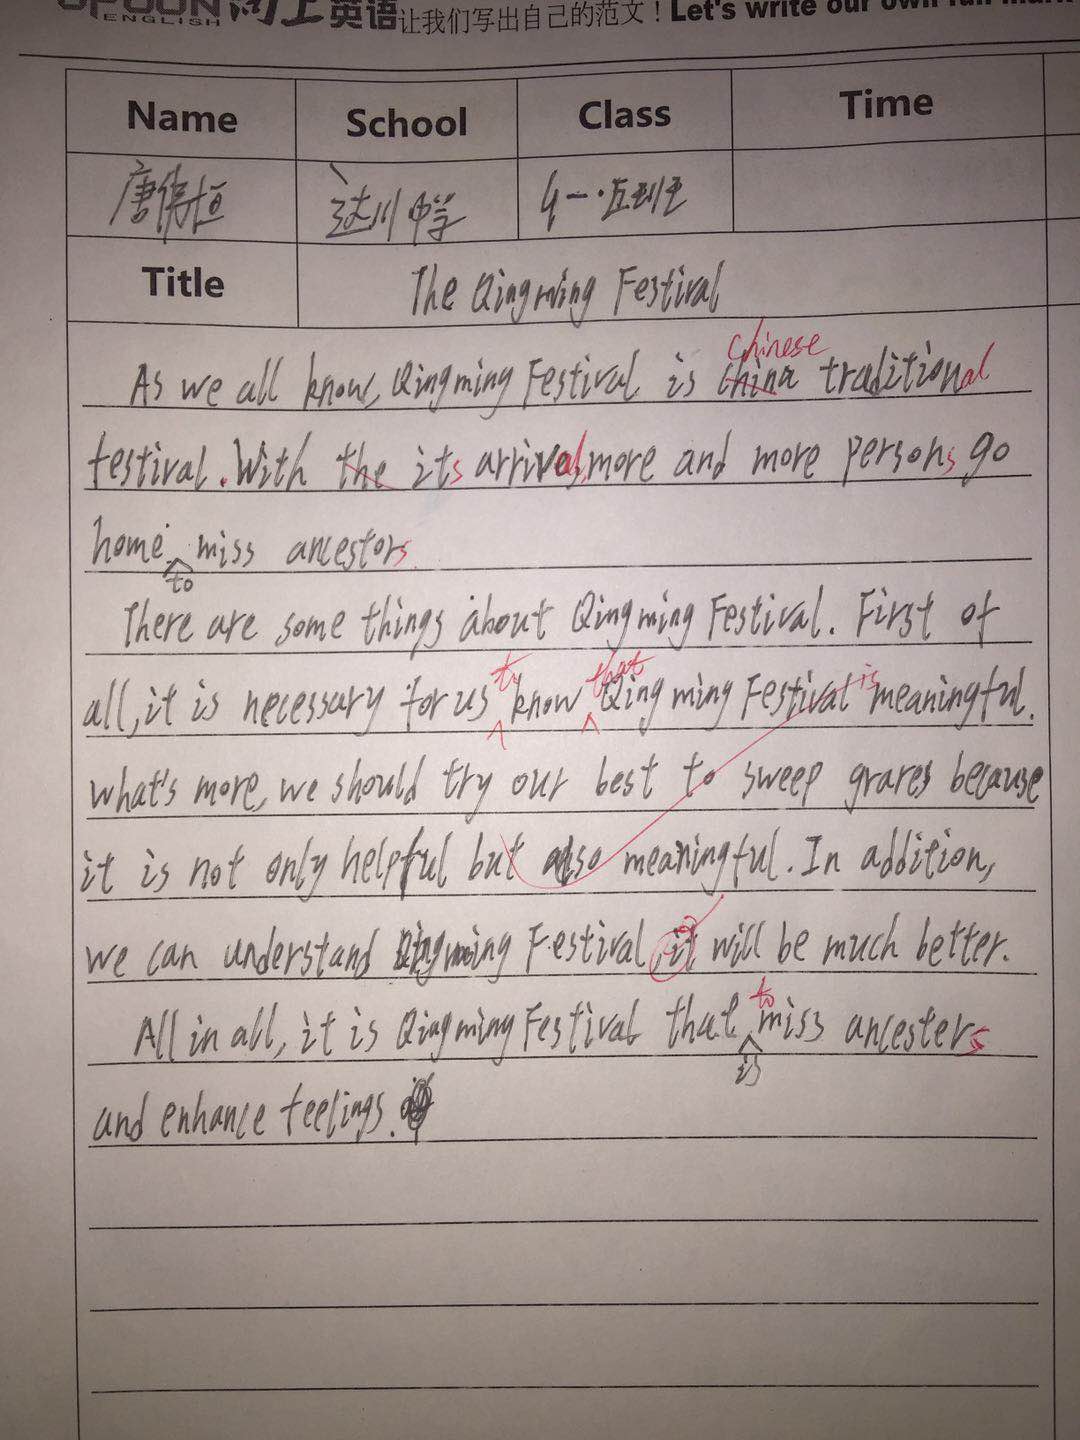 ENGLISH 英语 让我们写出自己的范文！Let's write our own
Name School Class Time
唐伟恒 达川中学 班
Title The Qingming Festival
Chinese
As we all know, Qingming Festival is china traditional
festival. With the its arrival, more and more persons go
home miss ancestors.
to
There are some things about Qingming Festival. First of
to that is
all, it is necessary for us know Qingming Festival meaningful.
what's more, we should try our best to sweep grares because
it is not only helpful but also meaningful. In addition,
we can understand Qingming Festival, it will be much better.
to
All in all, it is Qingming Festival that miss ancesters
is
and enhance feelings.